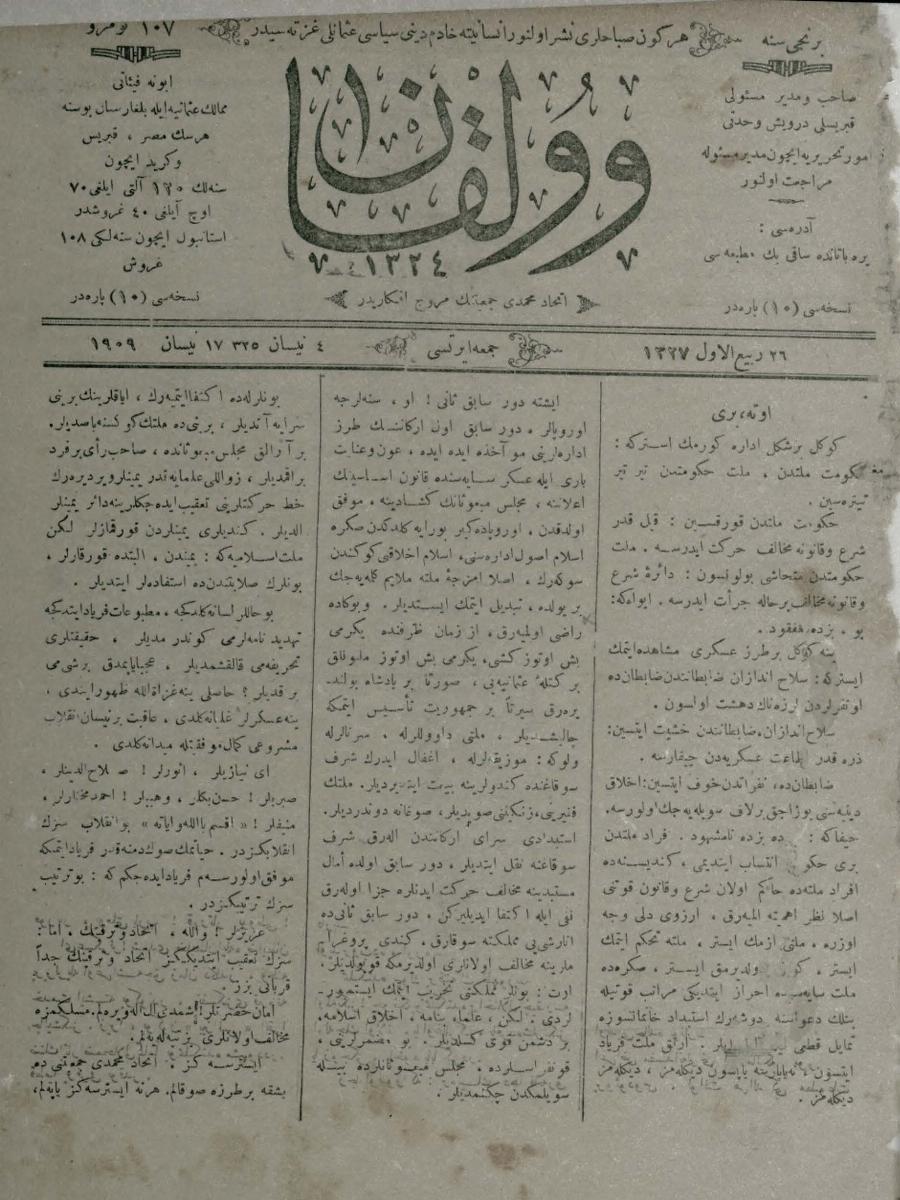 برنجی سنه
هر كون صباحلری نشر اولنور انسانیته خادم دینی سیاسی عثمانلی غزته سیدر
۱۰۷ نومرو
صاحب و مدیر مسئولی
قبریسلی درویش وحدتی
امور تحریریه ایچون مدیر مسئوله
مراجعت اولنور
آدره‌سی :
یره باتانده ساقی بك مطبعه سی
نسخه‌سی (۱۰) پاره‌در
وولقان
۱۳۲٤
اتحاد محمدی جمعیتنك مروج افكاریدر
ابونه فیئاتی
ممالك عثمانیه ایله بلغارستان بوسنه
هرسك مصر ، قبریس
وكرید ایچون
سنه‌لك ۱۳۰ آلتی ایلغی ۷۰
اوچ آیلغی ٤۰ غروشدر
استانبول ایچون سنه‌لكی ۱۰۸
غروش
نسخه‌سی (۱۰) پاره‌در
۲٦ ربیع الاول ۱۳۲۷
جمعه ایرتسی
٤ نیسان ۳۲۵ ۱۷ نیسان ۱۹۰۹
اوته ، بری
كوكل برشكل اداره كورمك استركه :
حكومت ملتدن ، ملت حكومتدن تیر تیر
تیتره‌سین .
حكومت ملتدن قورقسین : قیل قدر
شرع وقانونه مخالف حركت ایدرسه . ملت
حكومتدن متحاشی بولونسون : دائرهٔ شرع
وقانونه مخالف برحاله جرأت ایدرسه . ایواه‌كه :
بو ، بزده مفقود .
ینه كوكل برطرز عسكری مشاهده ایتمك
ایستركه : سلاح اندازان ضابطانندن ضابطان‌ده
اونفرلردن لرزه‌ناك دهشت اولسون .
سلاح اندازان، ضابطانندن خشیت ایتسین:
ذره قدر اطاعت عسكریه‌دن چیقارسه .
ضابطان‌ده ، نفراتدن خوف ایتسین : اخلاق
دینیه‌سی بوزاجق برلاف سویله‌یه‌جك اولورسه.
حیفاكه : ده بزده نامشهود . افراد ملتدن
بری حكو انتساب ایتدیمی ، كندیسنده
افراد ملتده حاكم اولان شرع وقانون قوتنی
اصلا نظر اهمیته المیه‌رق . ارزوی دلی وجه
اوزره ، ملتی ازمك ایستر ، ملته تحكم ایتمك
ایستر ، ولدیرمق ایستر ، صكره‌ده
ملت سایه‌سنده احراز ایتدیكی مراتب قوتیله
بنلك دعواسنه دوشه‌رك استبداد خانمانسوزه
تمایل قطعی ایلر . ارتق ملت فریاد
ایتسون ، نه‌یاپارسه یاپسون دیكله‌مز ، دیكله‌مز
دیكله‌مز .
ایشته دور سابق ثانی ! او ، سنه‌لرجه
اوروپالر ، دور سابق اول اركاننك طرز
اداره‌لرینی مؤاخذه ایده ایده ، عون وعنایت
باری ایله عسكر سایه‌سنده قانون اساسینك
اعلاننه ، مجلس مبعوثانك كشادینه ، موفق
اولدقدن ، اوروپاده كبر بورایه كلدكدن صكره
اسلام اصول اداره‌سنی ، اسلام اخلاقی كوكندن
سوكه‌رك ، اصلا امزجهٔ ملته ملایم كلمه‌یه‌جك
بر یولده ، تبدیل ایتمك ایستدیلر . وبوكاده
راضی اولمیه‌رق ، از زمان ظرفنده یكرمی
بش اوتوز كشی ، یكرمی بش اوتوز ملیونلق
بر كتلهٔ عثمانیه‌یی ، صورتا بر پادشاه بولند-
یره‌رق سیرتاً بر جمهوریت تأسیس ایتمكه
چالیشدیلر ، ملتی داووللرله ، سرنالرله
ولوكه : موزیقه‌لرله ، اغفال ایدرك شرف
سوقاغنده كندولرینه بیعت ایتدیردیلر . ملتك
فقیرینی ، زنكینی صویدیلر ، صوغانه دوندردیلر.
استبدادی سرای اركانندن اله‌رق شرف
سوقاغنه نقل ایتدیلر ، دور سابق اولده آمال
مستبدینه مخالف حركت ایدنلره جزا اوله‌رق
نفی ایله اكتفا ایدیلیركن ، دور سابق ثانی‌ده
انارشی‌یی مملكته سوقارق ، كندی پروغرا-
ملرینه مخالف اولانلری اولدیرمكه قویولدیلر.
ارت : بونلر مملكتی تخریب ایتمك ایستیور-
لردی : لكن ، علما ، بنامه ، اخلاق اسلامه،
بر دشمن قوی كسلدیلر . بو مضمرلرینی ،
قونفرانسلرده ، مجلس مبعوثانلرده بیله
سویلمكدن چكنمدیلر .
بونلرله‌ده اكتفا ایتمیه‌رك ، ایاقلرینك برینی
سرایه آتدیلر ، برینی‌ده ملتك كوكسنه باصدیلر.
بر آرالق مجلس مبعوثانده ، صاحب رأی برفرد
براقمدیلر ، زواللی علمایه‌قدر یمینلر ویردیره‌رك
خط حركتلرینی تعقیب ایده‌جكلرینه دائر یمینلر
الدیلر . كندیلری یمینلردن قورقمازلر لكن
ملت اسلامیه كه : یمیندن ، البتده قورقارلر ،
بونلرك صلابتدن‌ده استفاده‌لر ایتدیلر .
بو حاللر لسانه كلدكجه ، مطبوعات فریاد ایتدكجه
تهدید نامه‌لرمی كوندرمدیلر ، حقیقتلری
تحریفه‌می قالقشمدیلر ، عجبا یاپمدق برشی‌می
براقدیلر ؟ حاصلی ینه غزاة الله ظهور ایتدی ،
ینه عسكرلر غلیانه كلدی ، عاقبت بر نیسان انقلاب
مشروعی كمال موفقیتله میدانه كلدی .
ای نیازیلر ، انورلر ! صلاح الدینلر ،
صبریلر ! حسن بكلر ، وهبیلر ! احمد مختارلر ،
منیفلر ! « اقسم بالله وایاته » بو انقلاب سزك
انقلابكزدر . حیاتمك صوك دمنه قدر فریاد ایتمكه
موفق اولورسه‌م فریاد ایده‌جكم كه : بو ترتیب
سزك ترتیبكزدر .
عزیزلر ! والله ، اتحاد وترقینك ، اما :
سزك تعقیب ایتدیككز اتحاد وترقینك جداً
قربانی یز .
امان حضرتلر ! شمدی ال اله ویره‌لم. مسلكمزه
مخالف اولانلری بر تپه‌له‌یه‌لم .
ایسترسه كز . اتحاد محمدی جمعیتنی‌ده
بشقه بر طرزه صوقالم. هر نه ایسترسه كز یاپه‌لم،